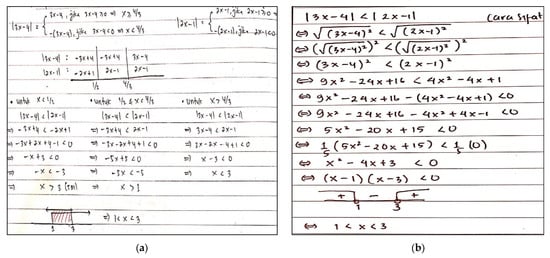 |3x-4| = { 3x-4, jika 3x-4≥0 ⇒ x ≥ 4/3
-(3x-4), jika 3x-4<0 ⇒ x < 4/3
|2x-1| = { 2x-1, jika 2x-1≥0
-(2x-1), jika 2x-1<0
|3x-4| : -3x+4 | -3x+4 | 3x-4
|2x-1| : -2x+1 | 2x-1 | 2x-1
1/2 4/3
• untuk x < 1/2 • untuk 1/2 ≤ x < 4/3 • untuk x > 4/3
|3x-4| < |2x-1| |3x-4| < |2x-1| |3x-4| < |2x-1|
⇒ -3x+4 < -2x+1 ⇒ -3x+4 < 2x-1 ⇒ 3x-4 < 2x-1
⇒ -3x+2x+4-1 < 0 ⇒ -3x-2x+4+1 < 0 ⇒ 3x-2x-4+1 < 0
⇒ -x+3 < 0 ⇒ -5x+5 < 0 ⇒ x-3 < 0
⇒ -x < -3 ⇒ -5x < -5 ⇒ x < 3
⇒ x > 3 ⇒ x > 1
1 3 ⇒ 1 < x < 3
(a)
|3x-4| < |2x-1| Cara Sifat
⇔ √(3x-4)² < √(2x-1)²
⇔ (√(3x-4)²)² < (√(2x-1)²)²
⇔ (3x-4)² < (2x-1)²
⇔ 9x²-24x+16 < 4x²-4x+1
⇔ 9x²-24x+16 -(4x²-4x+1) < 0
⇔ 9x²-24x+16 -4x²+4x-1 < 0
⇔ 5x²-20x+15 < 0
⇔ 1/5 (5x²-20x+15) < 1/5 (0)
⇔ x²-4x+3 < 0
⇔ (x-1)(x-3) < 0
+ - +
1 3
⇔ 1 < x < 3
(b)